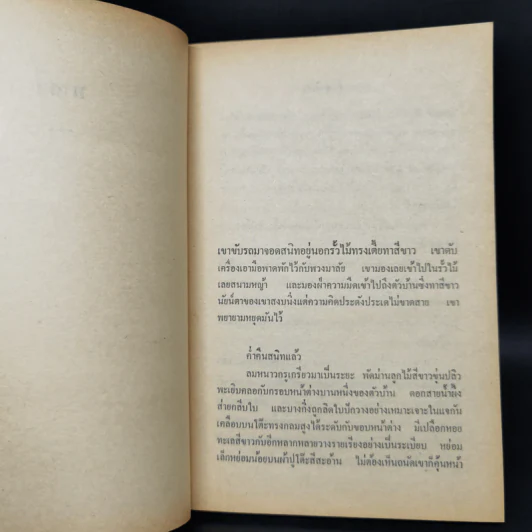 เขาขับรถมาจอดสนิทอยู่นอกรั้วไม้ทรงเตี้ยทาสีขาว เขาดับ
เครื่องเอามือพาดพักไว้กับพวงมาลัย เขามองเลยเข้าไปในรั้วไม้
เลยสนามหญ้า และมองฝ่าความมืดเข้าไปถึงตัวบ้านซึ่งทาสีขาว
นัยน์ตาของเขาสงบนิ่งแต่ความคิดประดังประเดไม่ขาดสาย เขา
พยายามหยุดมันไว้
ค่ำคืนสนิทแล้ว
ลมหนาวกรูเกรียวมาเป็นระยะ พัดม่านลูกไม้สีขาวขุ่นปลิว
พะเยิบคลอกับกรอบหน้าต่างบานหนึ่งของตัวบ้าน ดอกสายน้ำผึ้ง
ส่ายกลีบใบ และบางกิ่งถูกลิดใบปักวางอย่างเหมาะเจาะในแจกัน
เคลือบบนโต๊ะทรงกลมสูงได้ระดับกับขอบหน้าต่าง มีเปลือกหอย
ทะเลสีขาวกับอีกหลากหลายวางรายเรียงอย่างเป็นระเบียบ หย่อม
เล็กหย่อมน้อยบนผ้าปูโต๊ะสีสะอ้าน ไม่ต้องเห็นถนัดเขาก็คุ้นหน้า